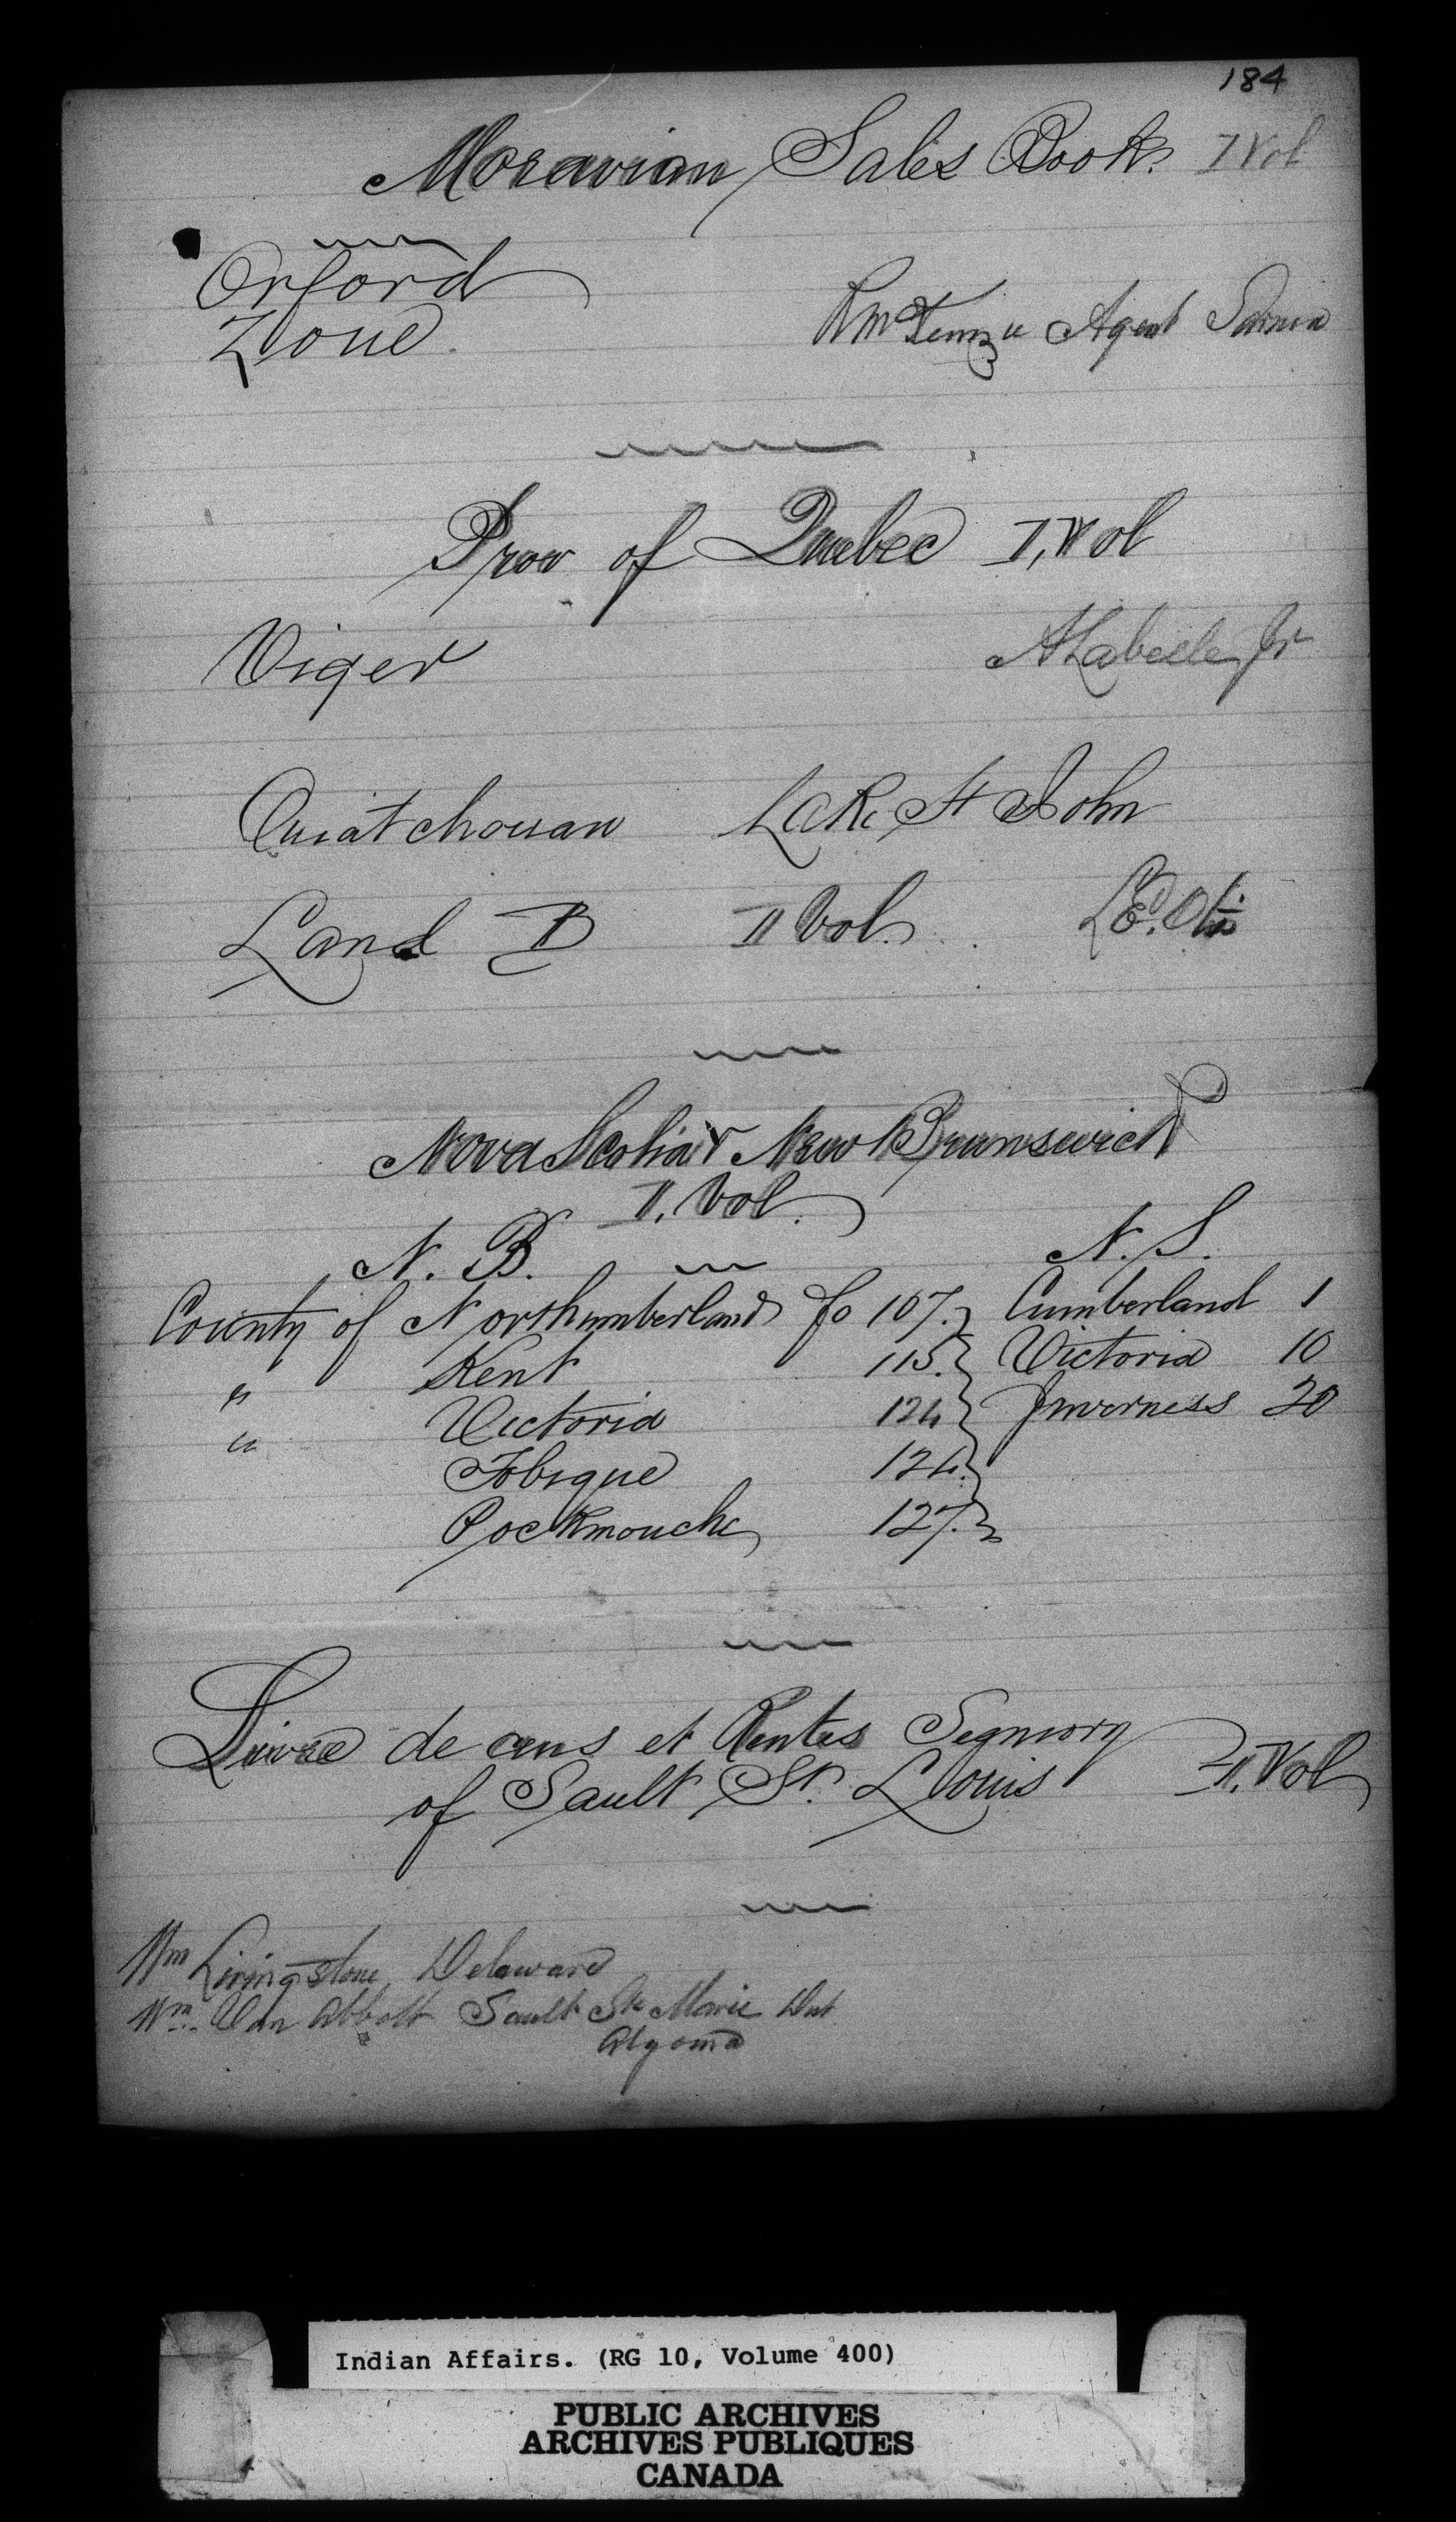 184
Moravian Sales Book. I Vol
Orford
Zone
R McKenzie Agent Sarnia
Prov of Quebec I, Vol
Viger A Labelle Jr
Ouiatchouan Lake St John
Land B II Vol. L.E. Otis
Nova Scotia & New Brunswick
II. Vol.
N. B. N. S.
County of Northumberland fo 107. Cumberland 1
" Kent 115. Victoria 10
" Victoria 124 Inverness 20
Tobique 124.
Pockmouche 127.
Livre de cens et Rentes Segniory
of Sault St. Louis II. Vol
Wm Livingstone, Delaware
Wm. Van Abbott Sault Ste Marie Dist
Algoma
Indian Affairs. (RG 10, Volume 400)
PUBLIC ARCHIVES
ARCHIVES PUBLIQUES
CANADA